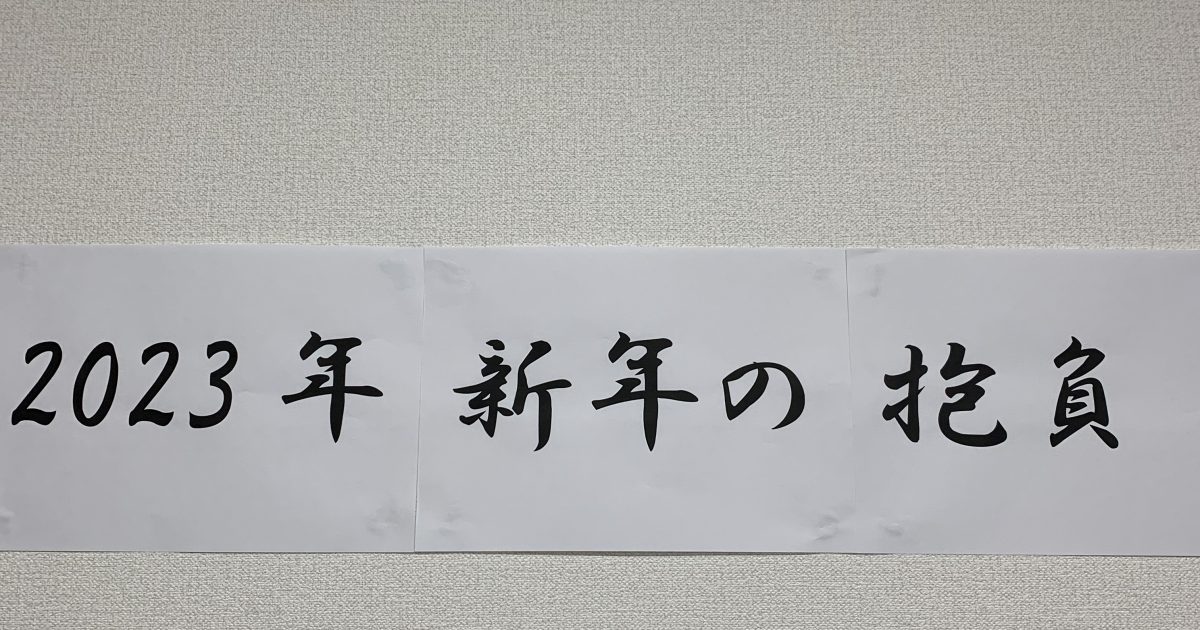 2023年 新年の抱負